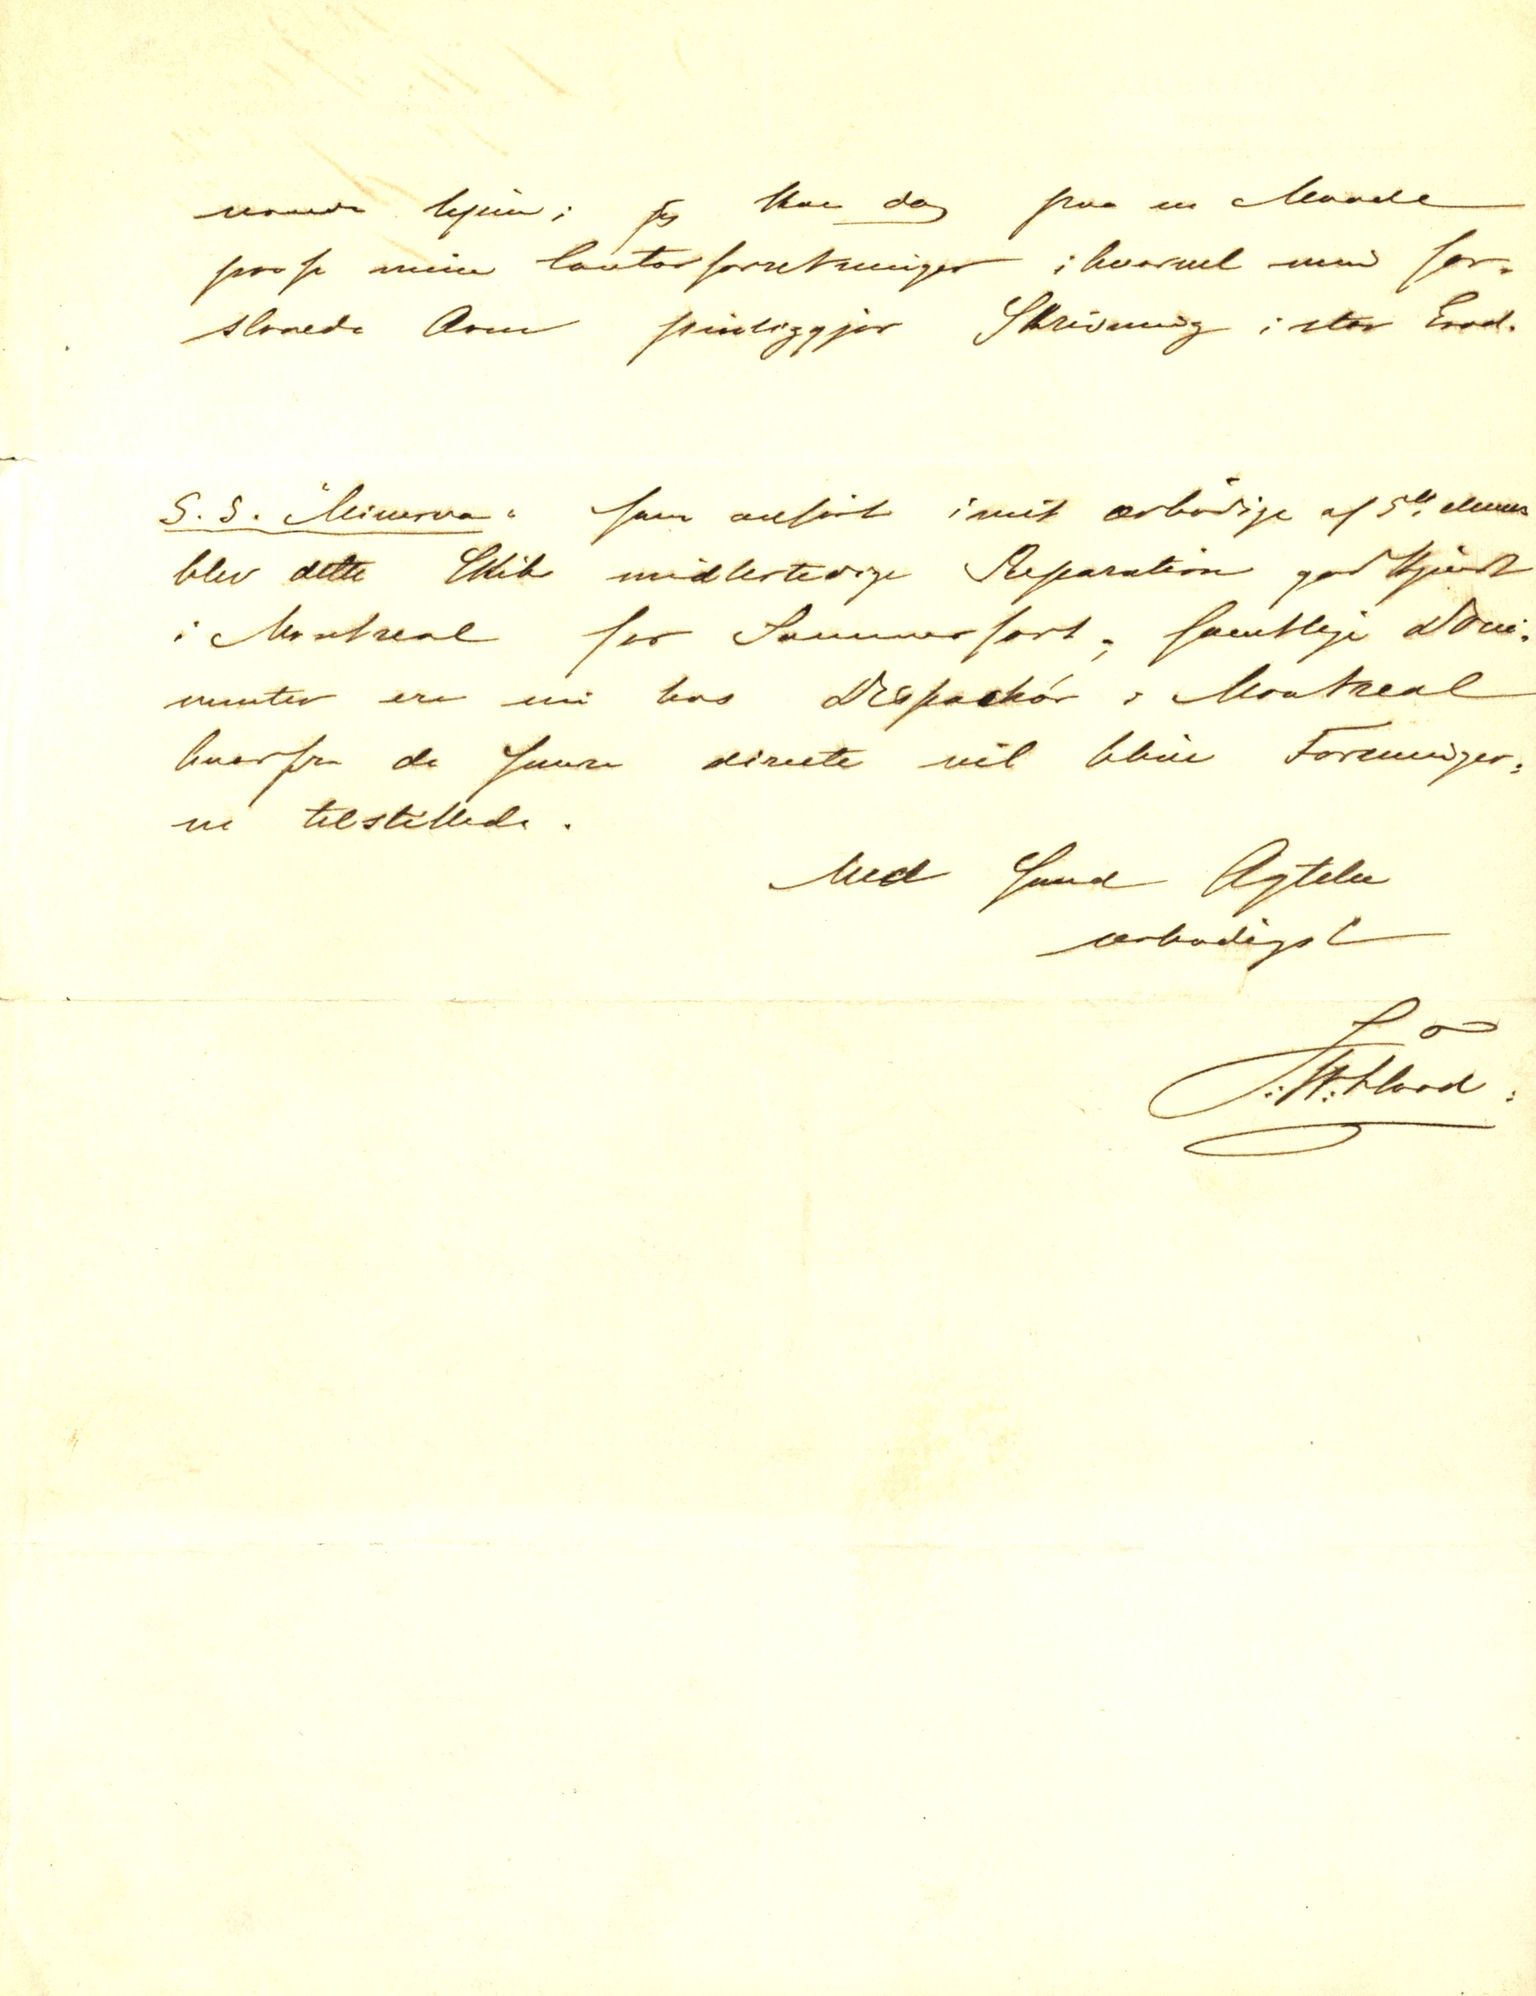 hjem; jeg kan dog paa en Maade
passe mine Contorforretninger ihvorvel min for-
slaaede Arm pinliggjør Skrivning i stor Grad.
S. S. "Minerva" Som anført i mit ærbødige af 5te denne
blev dette Skibs midlertidige Reparation godkjendt
i Montreal for Sommerfart; samtlige Docu-
menter ere nu hos Dispachør i Montreal
hvorfra de senere directe vil blive Foreninger-
ne tilstillede.
Med Sand Agtelse
ærbødigst